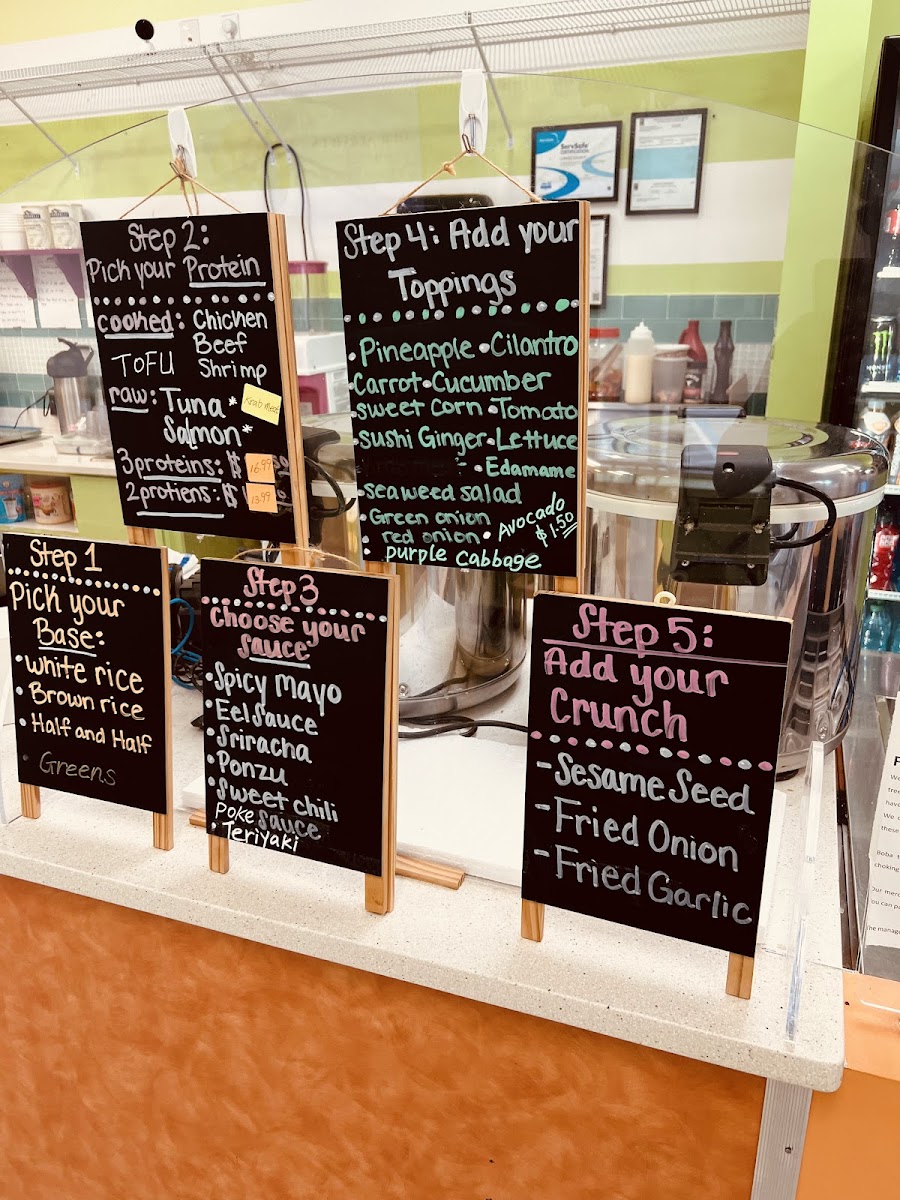 Step 2:
Pick your Protein
cooked: Chicken
Beef
TOFU Shrimp
raw: Tuna*
Krab Meat
Salmon*
3 proteins: $ 16.99
2 protiens: $ 13.99
Step 4: Add your
Toppings
• Pineapple • Cilantro
• Carrot • Cucumber
• sweet corn • Tomato
• sushi Ginger • Lettuce
• Edamame
• seaweed salad
• Green onion
• red onion • Avocado
$1.50
• purple cabbage
ServSafe
CERTIFICATION
Step 1
Pick your
Base:
• white rice
• Brown rice
• Half and Half
Greens
Step 3
Choose your
sauce
• Spicy Mayo
• Eel Sauce
• Sriracha
• Ponzu
• Sweet chili
Poke sauce
• Teriyaki
Step 5:
Add your
Crunch
- Sesame Seed
- Fried Onion
- Fried Garlic